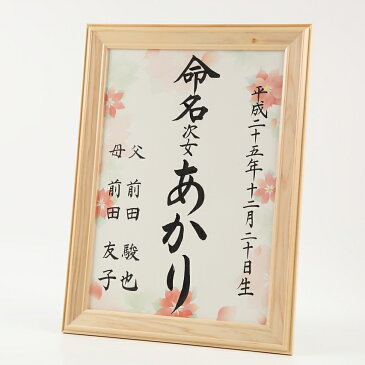 平成二十五年十二月二十日生
命名次女あかり
父 前田 駿也
母 前田 友子